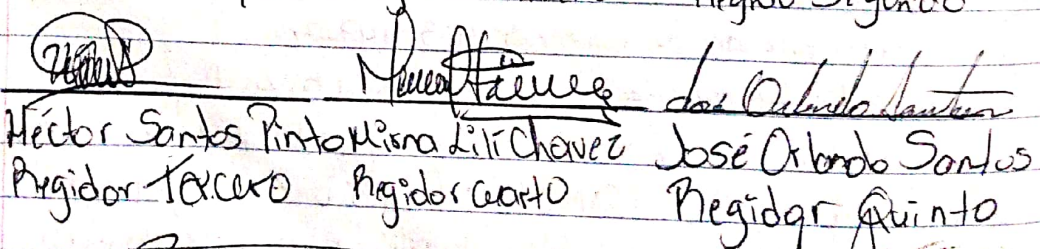 Regidor Segundo
José Orlando Santos
Héctor Santos Pinto Mirna Lilí Chavez José Orlando Santos
Regidor Tercero Regidor cuarto Regidor Quinto